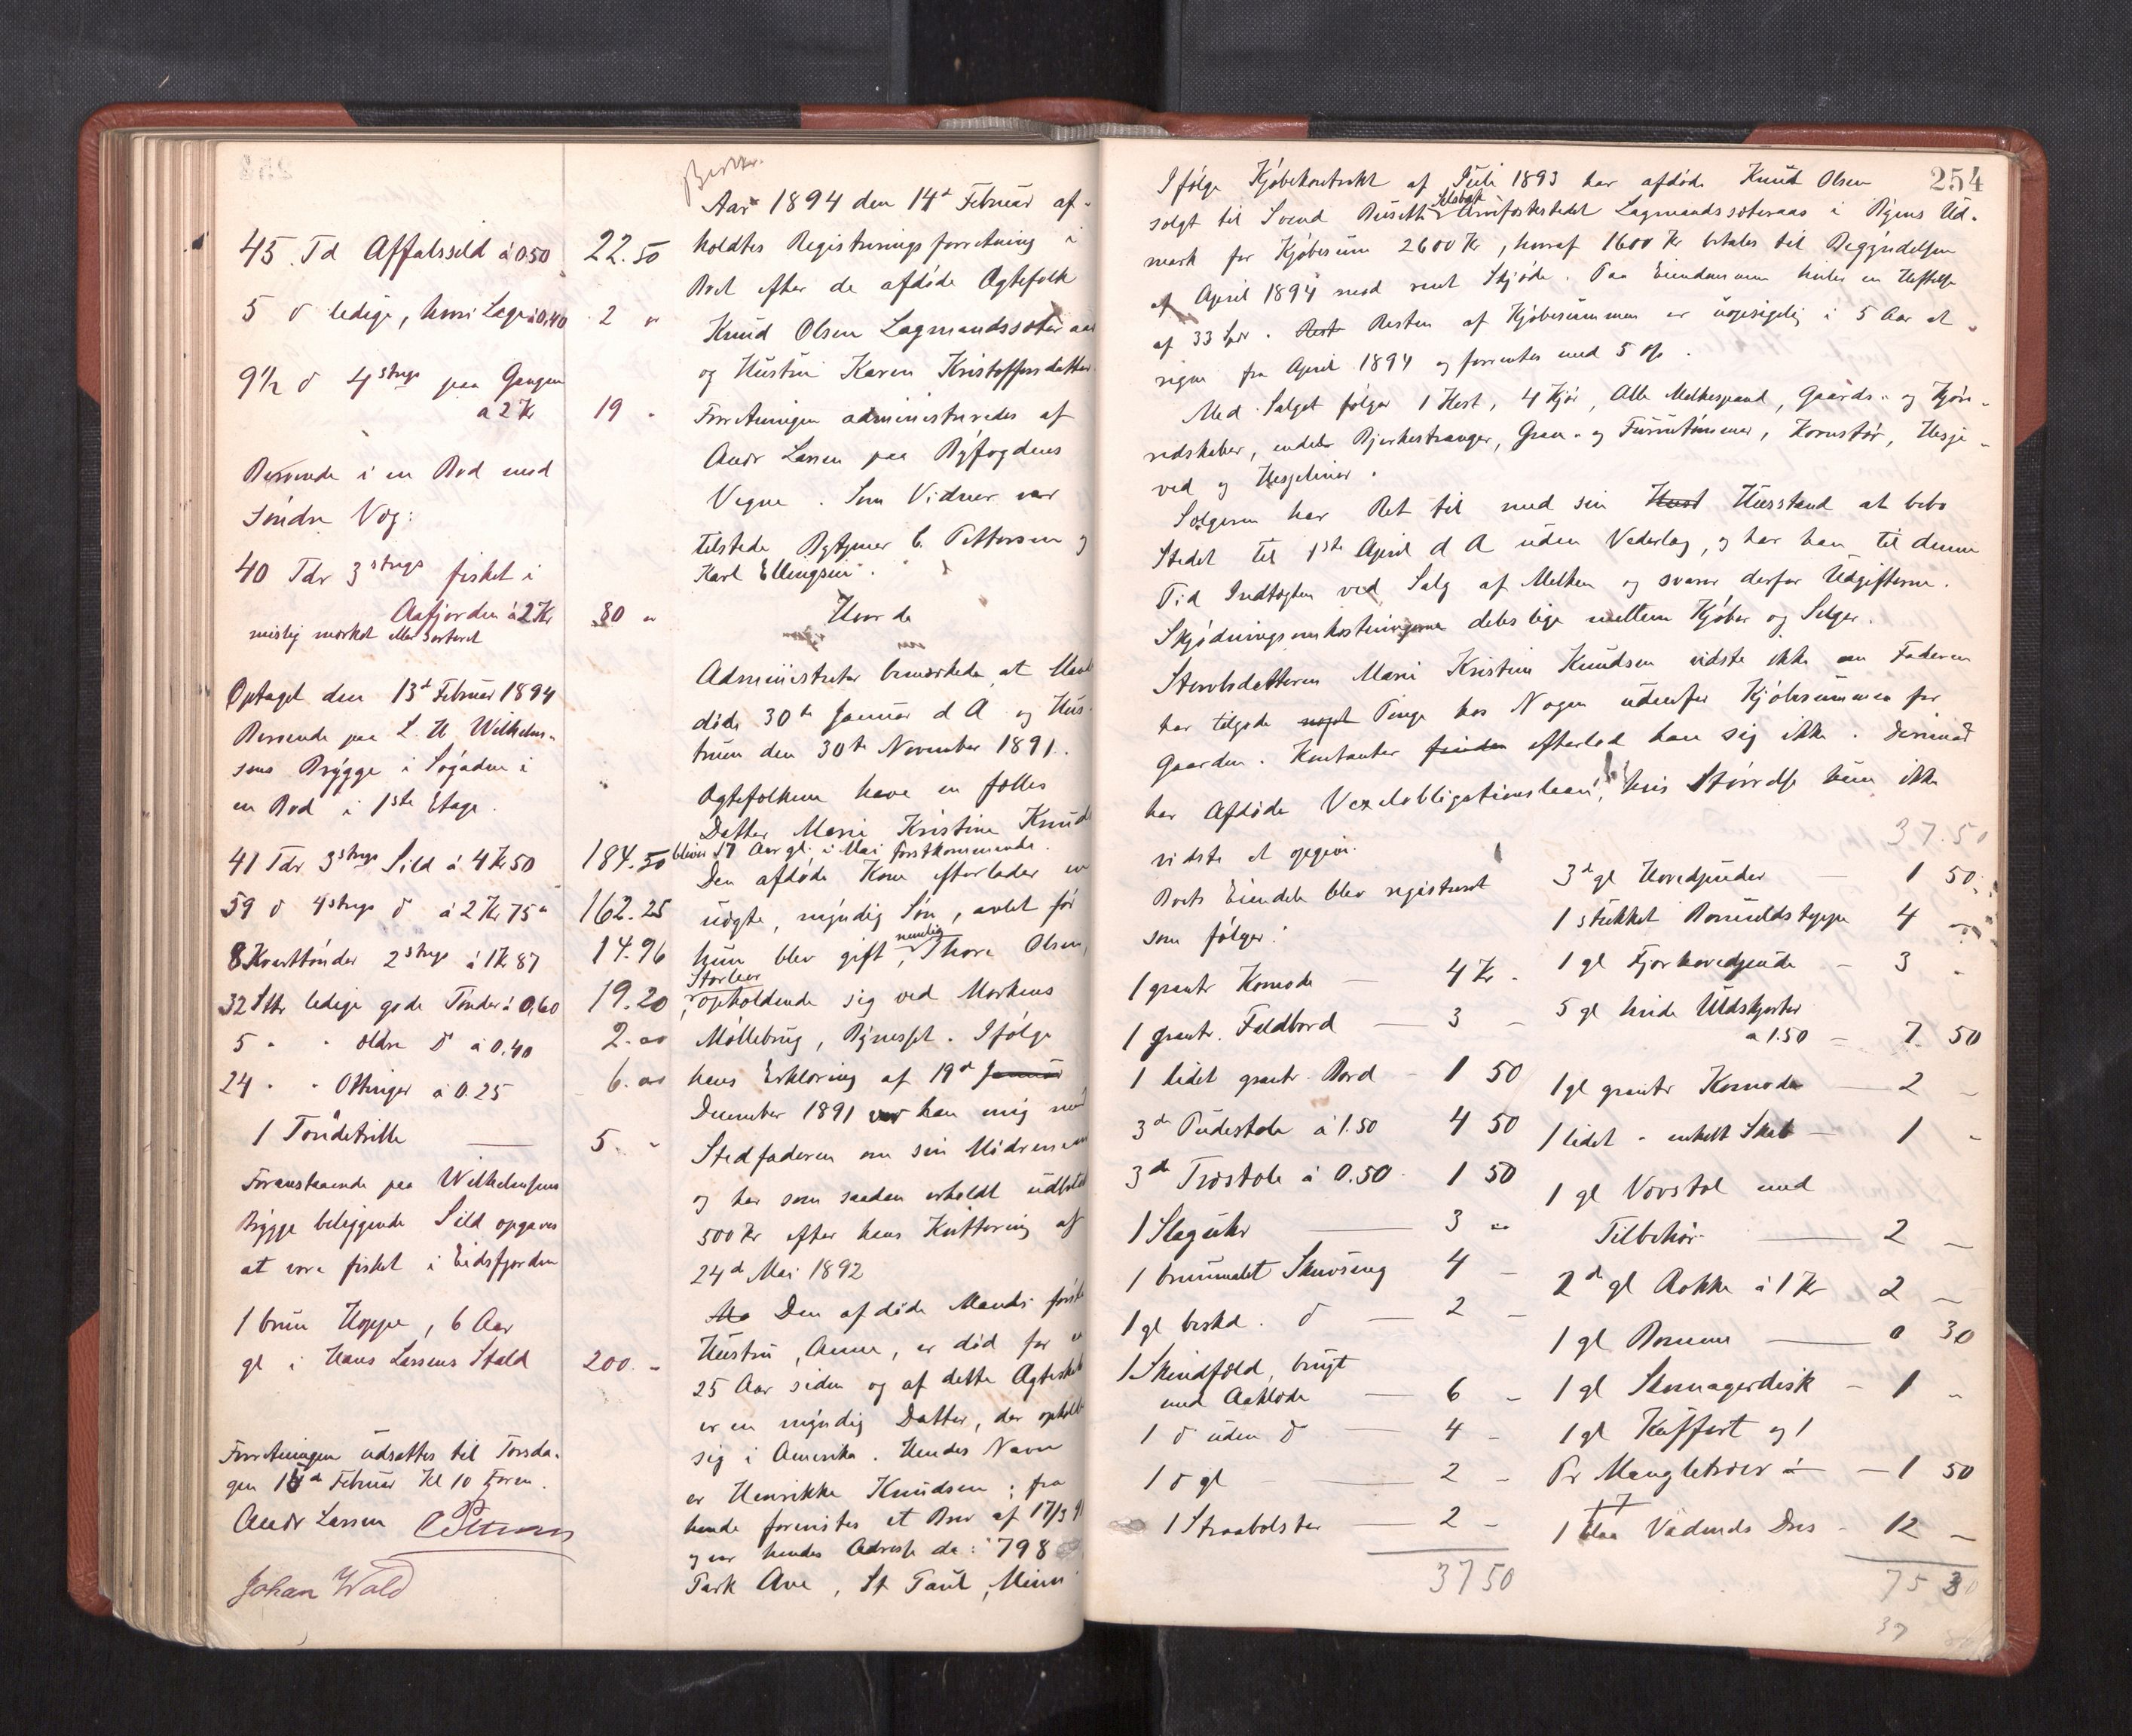 45 Td Affaldssild à 0.50 22.50
5 d ledige, hvori Lage à 0,40 2 "
9 1/2 d 4 strgs paa Gangen
a 2 Kr 19 -
Beroende i en Bod med
søndre Væg:
40 Tdr 3 strgs fisket i
Aafjorden à 2 Kr 80 "
mislig mærket eller sorteret
Optaget den 13d Februar 1894
Beroende paa L. H. Wilhelm-
sens Brygge i Søgaden i
en Bod i 1ste Etage.
41 Tdr 3 strgs Sild à 4 Kr 50 184.50
59 d 4 strgs d à 2 Kr 75 162.25
8 Kvarttønder 2 strgs à 1 Kr 87 14.96
32 Stkr ledige gode Tønder à 0,60 19.20
5 " " ældre D à 0.40 2.00
24 " " Ottinger à 0.25 6.00
1 Tøndetrille 5. -
Foranstaaende paa Wilhelmsens
Brygge beliggende Sild opgaves
at være fisket i Eidsfjorden
1 brun Hoppe, 6 Aar
gl i Hans Larsens Stald 200. -
Forretningen udsattes til Torsda-
gen 15d Februar Kl 10 Form.
Andr Larsen
Johan Wold
Aar 1894 den 14d Februar af-
holdtes Registreringsforretning i
Boet efter de afdøde Ægtefolk
Knud Olsen Lagmandssæteraas
og Hustru Karen Kristoffersdatter.
Forretningen administreredes af
Andr Larsen paa Byfogdens
Vegne. Som Vidner var
tilstede C. Pettersen
Karl Ellingsen.
Hvorda
Administrator bemærkede at Mand
døde 30te Januar d A og Hus-
truen den 30te November 1891.
Ægtefolkene have en fælles
Datter Marie Kristine Knud
bliver 17 Aar gl. i Mai førstkommende.
Den afdøde Kone efterlader en
uægte, myndig Søn, avlet før
hun blev gift, nemlig Thore Olsen,
Størker
opholdende sig ved Markens
Møllebrug, Bynesset. Ifølge
hans Erklæring af 19d Januar
December 1891 var han enig med
Stedfaderen om sin Mødrenearv
og har som saadan erholdt udbetalt
500 Kr efter hans Kvittering af
24d Mai 1892
Ma Den afdøde Mands første
Hustru, Anne, er død for
25 Aar siden og af dette Ægteskab
er en myndig Datter, der opholder
sig i Amerika. Hendes Navn
er Henrikke Knudsen; fra
hende forevistes et Brev af 17/3
og var hendes Adresse da: 798
Park Ave, St Paul, Minn
254
Ifølge Kjøbekontrakt af Juli 1893 har afdøde Knud Olsen
solgt til Svend Lagmandssæteraas i Byens Ud-
mark for Kjøbesum 2600 Kr, hvoraf 1600 Kr betales til Begyndelsen
af April 1894 mod rent Skjøde. Paa Eiendommen hviler en Heftelse
af 33 Spd. Rest Resten af Kjøbesummen er uopsigelig i 5 Aar at
regne fra April 1894 og forrentes med 5 %.
Med Salget følger 1 Hest, 4 Kjør, Alle Melkespand, Gaards- og Kjøre-
redskaber, endel Bjerkestranger, Gran- og Furutømmer, Kornstør, Hesje-
ved og Hesjeliner.
Sælgeren har Ret til med sin Hust Husstand at bebo
Stedet til 1ste April d A uden Vederlag, og har han til denne
Tid Indtægten ved Salg af Melken og svarer derfor Udgifterne.
Skjødningsomkostningerne deles lige mellem Kjøber og Sælger.
Stervbsdatteren Marie Kristine Knudsen vidste ikke om Faderen
har tilgode noget Penge hos Nogen udenfor Kjøbesummen for
Gaarden. Kontanter findes efterlod han sig ikke. Derimod
har Afdøde Vexelobligationslaan, hvis Størrelse hun ikke
vidste at opgive.
Boets Eiendele blev registreret
som følger:
1 grantr Komode 4 Kr -
1 grantr. Foldbord 3 -
1 lidet grantr. Bord 1 50
3 de Pudestole à 1.50 4 50
3 de Træstole à 0.50 1 50
1 Slaguhr 3 "
1 brunmalet Skuvseng 4 -
1 gl beskd. d 2 -
1 Skindfæld, brugt
med Aaklæde 6 -
1 d uden d 4 -
1 d gl 2 -
1 Straabolster 2 -
37 50
37.50
3 d gl Hovedputer 1 50
1 stukket Bomuldstæppe 4 -
1 gl Fjærhovedpude 3 -
5 gl hvide Uldskjorter
a 1.50 7 50
1 gl grantr Komode 2 -
1 lidet " enkelt Skab 1 -
1 gl Vævstol med
Tilbehør 2 -
2 d gl Rokke à 1 Kr 2 -
1 gl Bomme 0 30
1 gl Skomagerdisk 1 -
1 gl Kuffert og 1
Pr Mangletræer à 1 50
1 blaa Vadmels Dres 12 -
75 30
37